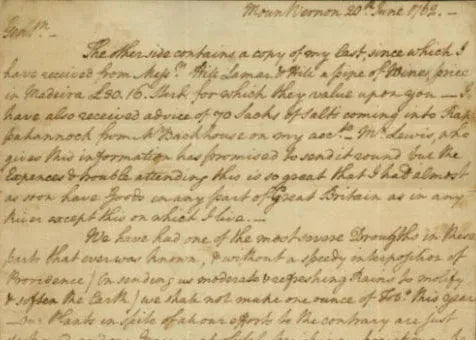 Mount Vernon 20th June 1762.
Gentn.
The other side contains a copy of my last, since which I
have received from Messrs. Hill Lamar & Hill a pipe of Wines, price
in Madeira £30.16. Sterl. for which they value upon you — I
have also received advice of 70 Sacks of Salts coming into Rap-
pahannock from Mr. Backhouse on my acct. Mr. Lewis, who
gives this information has promised to send it round but the
Expences & trouble attending this is so great that I had almost
as soon have Goods in any part of Great Britain as in any
River except this on which I live. —
We have had one of the most severe Droughts in these
parts that ever was known, & without a speedy interposition of
Providence (in sending us moderate & refreshing Rains to molify
& soften the Earth) we shall not make one ounce of Tobo. this year
— our Plants in spite of all our efforts to the contrary are just